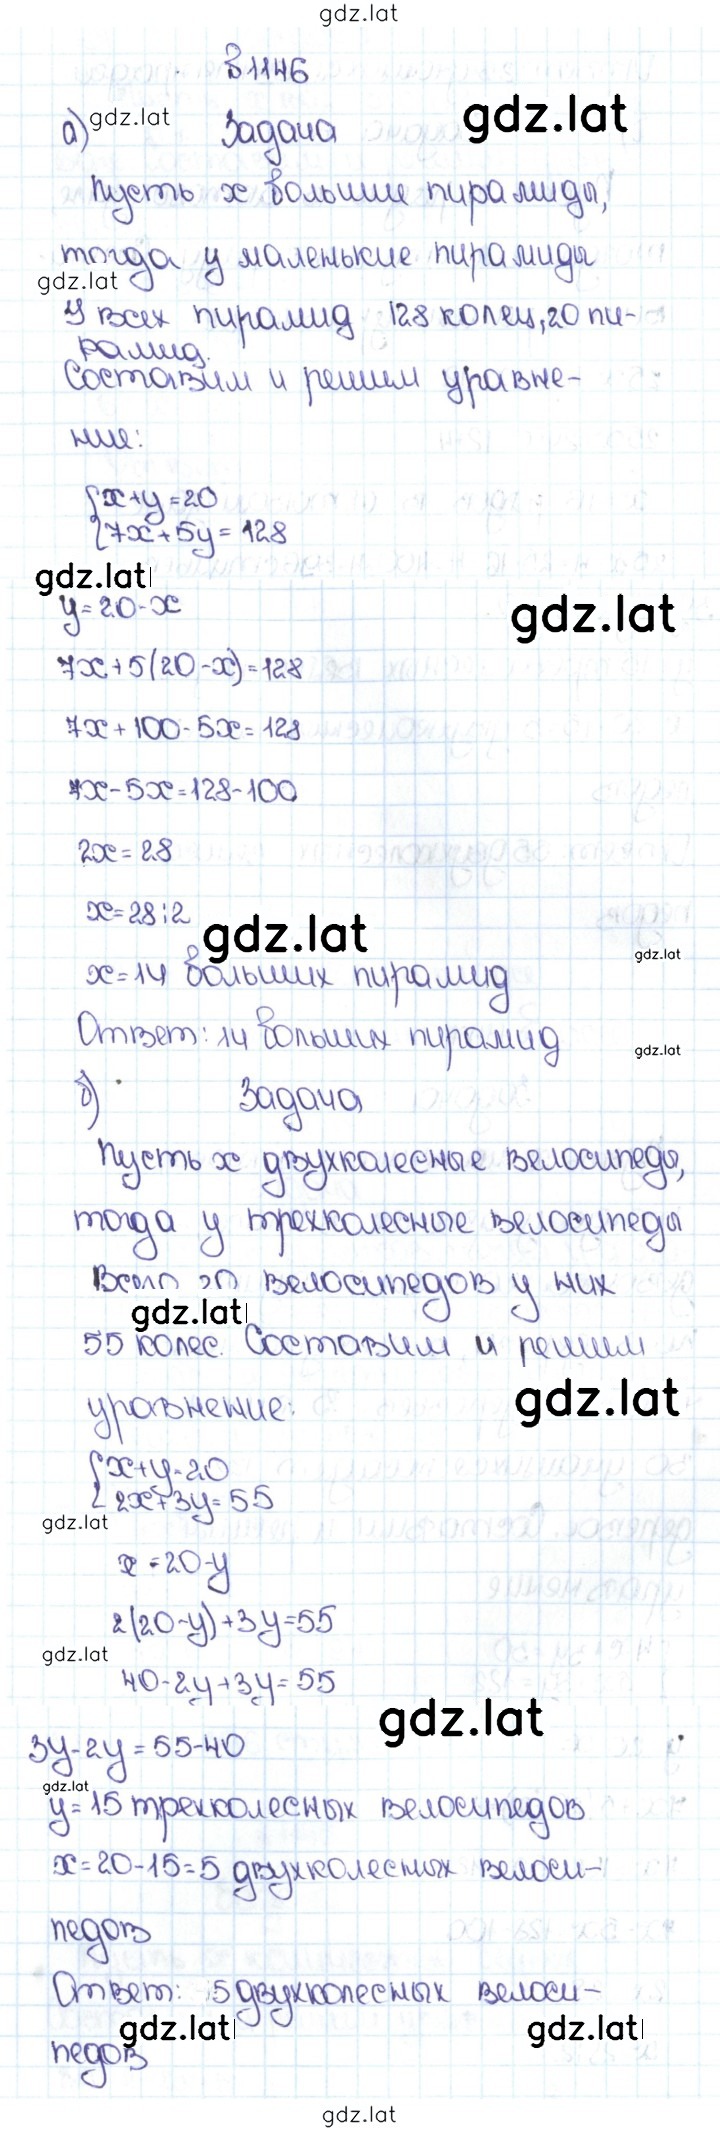 gdz.lat
1146
а) gdz.lat Задача gdz.lat
Пусть x большие пирамиды,
тогда y маленькие пирамиды
gdz.lat
У всех пирамид 128 колец, 20 пи-
рамид.
Составим и решим уравне-
ние:
{x+y=20
{7x+5y=128
gdz.lat
y=20-x gdz.lat
7x+5(20-x)=128
7x+100-5x=128
7x-5x=128-100
2x=28
x=28:2
gdz.lat
gdz.lat
x=14 больших пирамид
Ответ: 14 больших пирамид
gdz.lat
б) Задача
Пусть x двухколесные велосипеды,
тогда y трехколесные велосипеды
Всего 20 велосипедов у них
gdz.lat
55 колес. Составим и решим
gdz.lat
уравнение:
{x+y=20
{2x+3y=55
gdz.lat
x=20-y
2(20-y)+3y=55
gdz.lat
40-2y+3y=55
gdz.lat
3y-2y=55-40
gdz.lat
y=15 трехколесных велосипедов
x=20-15=5 двухколесных велоси-
педов
Ответ: 5 двухколесных велоси-
gdz.lat gdz.lat
педов
gdz.lat